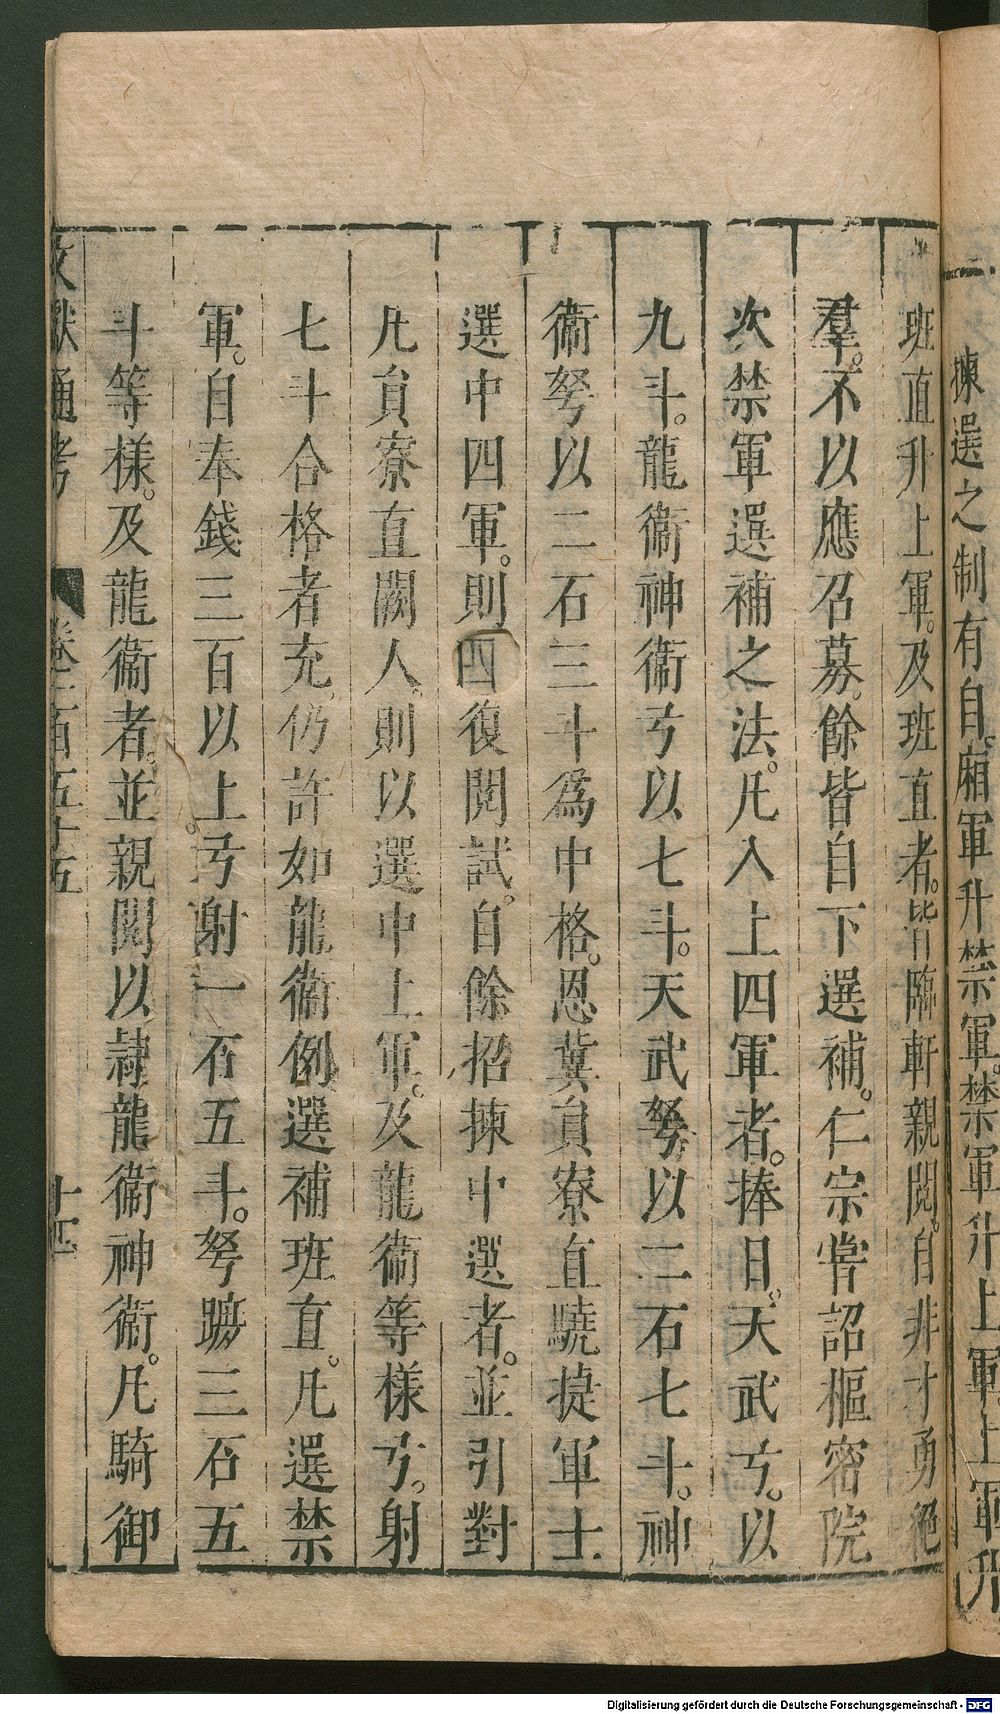 揀選之制有自廂軍升禁軍禁軍升上軍上軍升
班直升上軍及班直者皆臨軒親閱自非才勇絕
羣不以應召募餘皆自下選補仁宗嘗詔樞密院
次禁軍選補之法凡入上四軍者捧日天武弓以
九斗龍衞神衞弓以七斗天武弩以二石七斗神
衞弩以二石三斗爲中格恩冀員寮直驍捷軍士
選中四軍則四復閱試自餘招揀中選者並引對
凡員寮直闕人則以選中上軍及龍衞等樣弓射
七斗合格者充仍許如龍衞例選補班直凡選禁
軍自奉錢三百以上弓射一石五斗弩蹠三石五
斗等樣及龍衞者並親閱以隸龍衞神衞凡騎御
文獻通考 卷一百五十五 十四
Digitalisierung gefördert durch die Deutsche Forschungsgemeinschaft - DFG